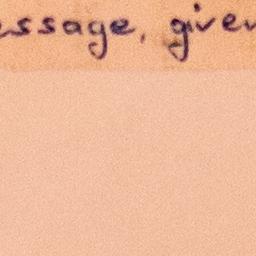 essage, given